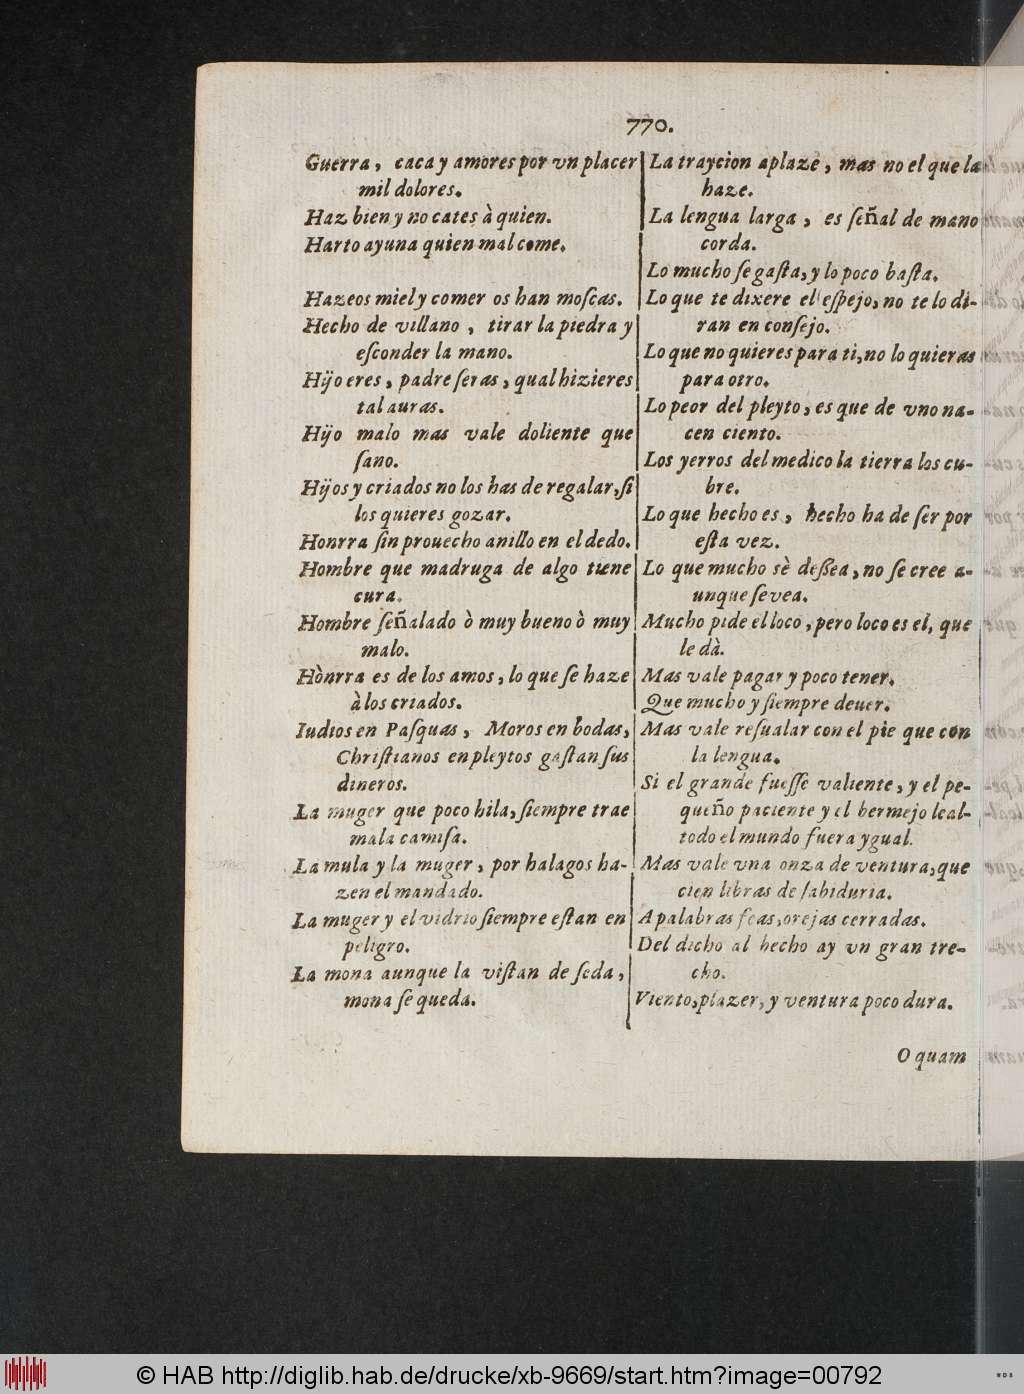 770.
Guerra, caca y amores por vn placer
mil dolores.
Haz bien y no cates à quien.
Harto ayuna quien mal come.
Hazeos miel y comer os han moſcas.
Hecho de villano, tirar la piedra y
eſconder la mano.
Hijo eres, padre ſeras, qual hizieres
tal auras.
Hijo malo mas vale doliente que
ſano.
Hijos y criados no los has de regalar, ſi
los quieres gozar.
Honrra ſin prouecho anillo en el dedo.
Hombre que madruga de algo tiene
cura.
Hombre ſeñalado ò muy bueno ò muy
malo.
Hònrra es de los amos, lo que ſe haze
à los criados.
Iudios en Paſquas, Moros en bodas,
Chriſtianos en pleytos gaſtan ſus
dineros.
La muger que poco hila, ſiempre trae
mala camiſa.
La mula y la muger, por halagos ha-
zen el mandado.
La muger y el vidrio ſiempre eſtan en
peligro.
La mona aunque la viſtan de ſeda,
mona ſe queda.
La traycion aplaze, mas no el que la
haze.
La lengua larga, es ſeñal de mano
corda.
Lo mucho ſe gaſta, y lo poco baſta.
Lo que te dixere el eſpejo, no te lo di-
ran en conſejo.
Lo que no quieres para ti, no lo quieras
para otro.
Lo peor del pleyto, es que de vno na-
cen ciento.
Los yerros del medico la tierra los cu-
bre.
Lo que hecho es, hecho ha de ſer por
eſta vez.
Lo que mucho sè deſſea, no ſe cree a-
unque ſe vea.
Mucho pide el loco, pero loco es el, que
le dà.
Mas vale pagar y poco tener.
Que mucho y ſiempre deuer.
Mas vale reſualar con el pie que con
la lengua.
Si el grande fueſſe valiente, y el pe-
queño paciente y el bermejo leal-
todo el mundo fuera ygual.
Mas vale vna onza de ventura, que
cien libras de ſabiduria.
A palabras feas, orejas cerradas.
Del dicho al hecho ay vn gran tre-
cho.
Viento, plazer, y ventura poco dura.
O quam
© HAB http://diglib.hab.de/drucke/xb-9669/start.htm?image=00792